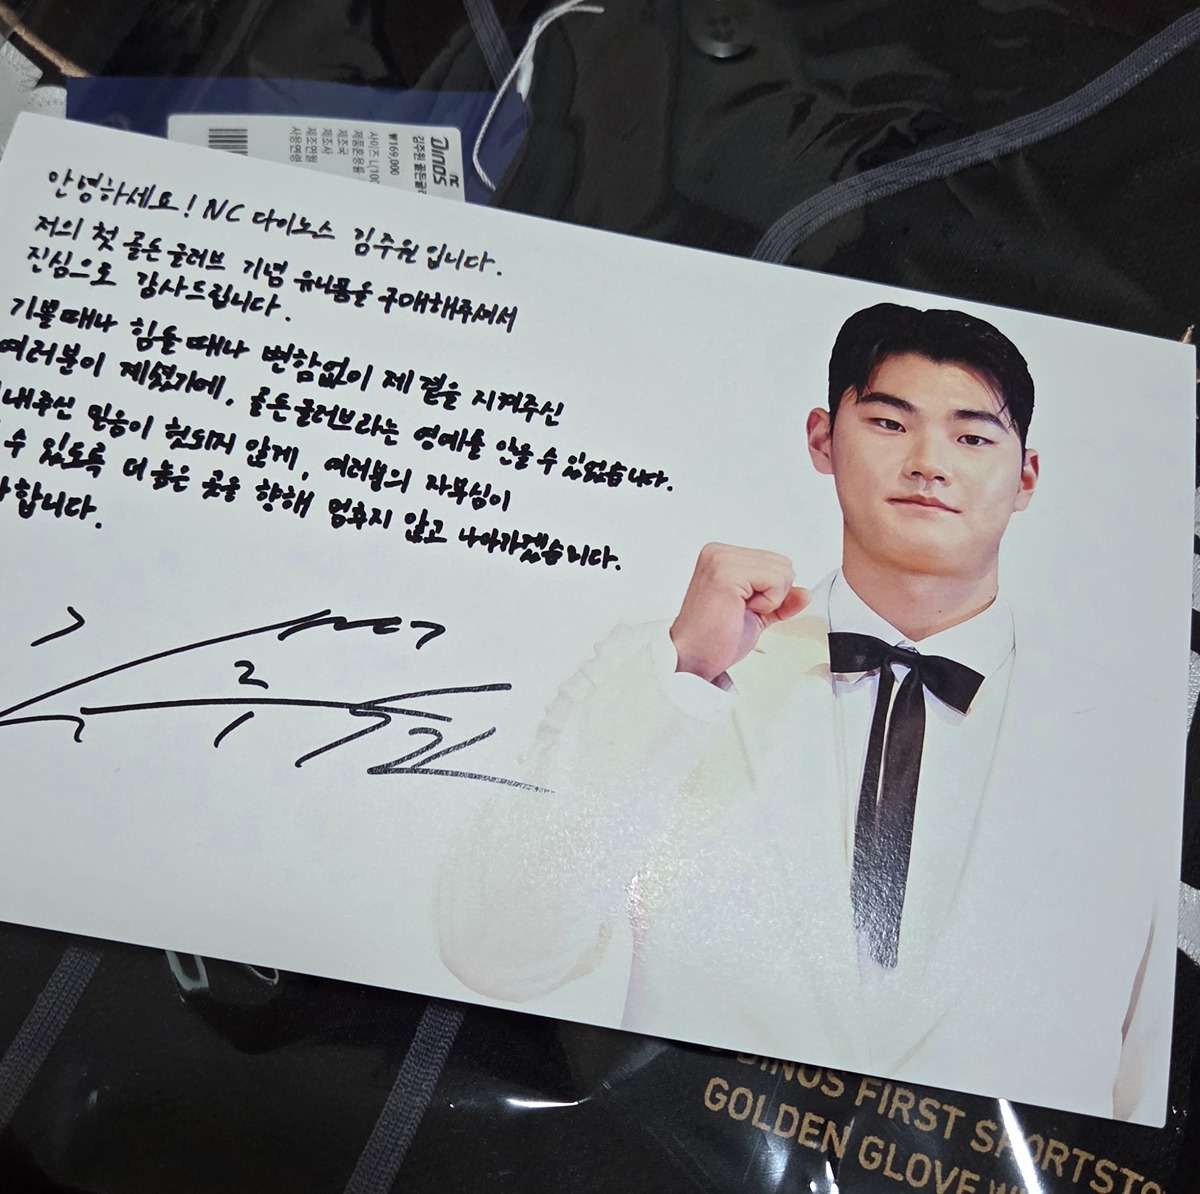 ₩169,000
DINOS
NC
안녕하세요! NC 다이노스 김주원입니다.
저의 첫 골든글러브 기념 유니폼을 구매해주셔서
진심으로 감사드립니다.
기쁠때나 힘들때나 변함없이 제 곁을 지켜주신
여러분이 계셨기에, 골든글러브라는 영예를 안을 수 있었습니다.
내주신 믿음이 헛되지 않게, 여러분의 자부심이
수 있도록 더 높은 곳을 향해 멈추지 않고 나아가겠습니다.
합니다.
DINOS FIRST SHORTSTO
GOLDEN GLOVE